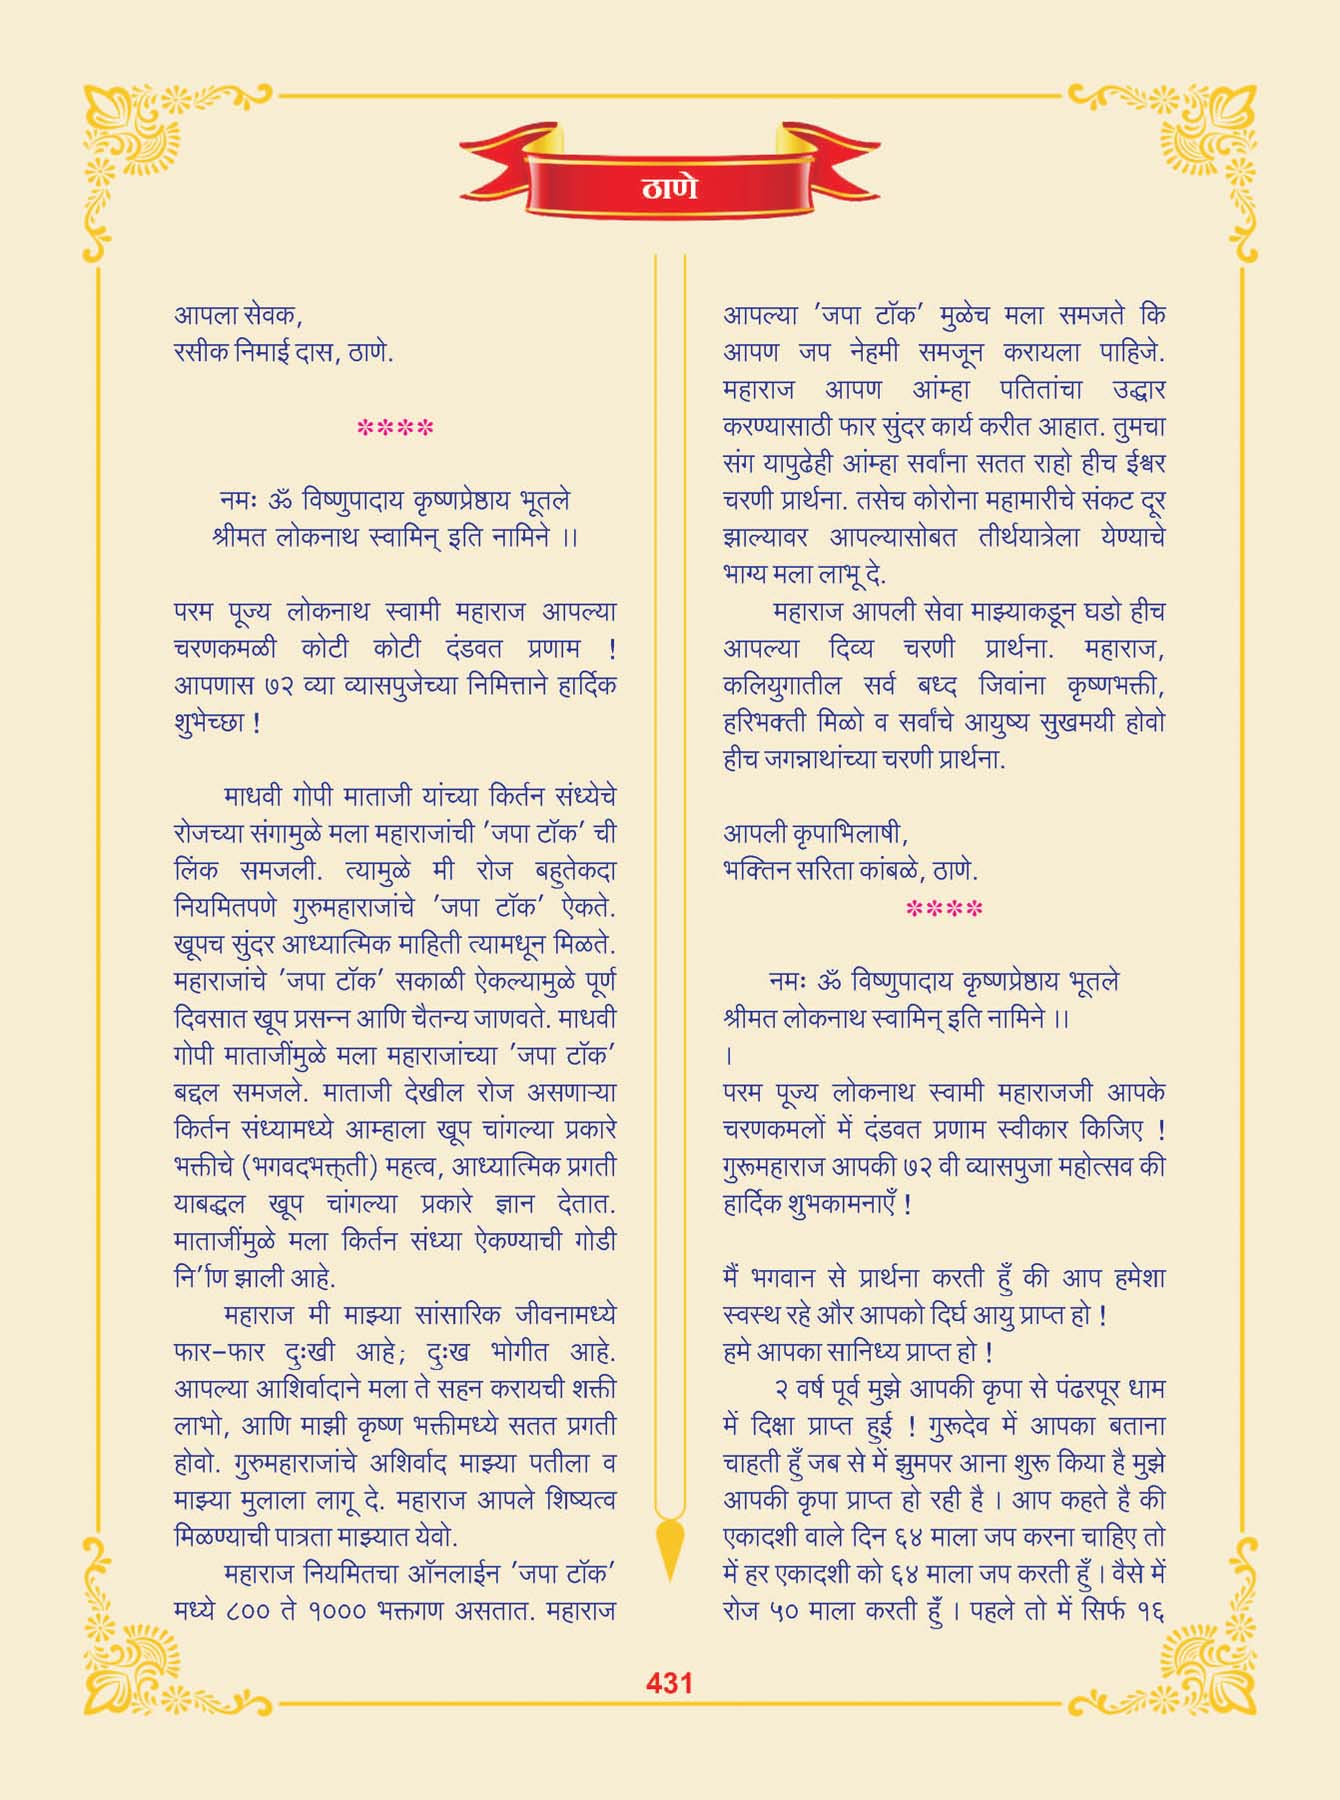 ठाणे
आपला सेवक,
रसीक निमाई दास, ठाणे.
****
नमः ॐ विष्णुपादाय कृष्णप्रेष्ठाय भूतले
श्रीमत लोकनाथ स्वामिन् इति नामिने ।।
परम पूज्य लोकनाथ स्वामी महाराज आपल्या
चरणकमळी कोटी कोटी दंडवत प्रणाम !
आपणास ७२ व्या व्यासपुजेच्या निमित्ताने हार्दिक
शुभेच्छा !
माधवी गोपी माताजी यांच्या किर्तन संध्येचे
रोजच्या संगामुळे मला महाराजांची ’जपा टॉक’ ची
लिंक समजली. त्यामुळे मी रोज बहुतेकदा
नियमितपणे गुरुमहाराजांचे ’जपा टॉक’ ऐकते.
खूपच सुंदर आध्यात्मिक माहिती त्यामधून मिळते.
महाराजांचे ’जपा टॉक’ सकाळी ऐकल्यामुळे पूर्ण
दिवसात खूप प्रसन्न आणि चैतन्य जाणवते. माधवी
गोपी माताजींमुळे मला महाराजांच्या ’जपा टॉक’
बद्दल समजले. माताजी देखील रोज असणाऱ्या
किर्तन संध्यामध्ये आम्हाला खूप चांगल्या प्रकारे
भक्तीचे (भगवदभक्त्ती) महत्व, आध्यात्मिक प्रगती
याबद्धल खूप चांगल्या प्रकारे ज्ञान देतात.
माताजींमुळे मला किर्तन संध्या ऐकण्याची गोडी
नि’र्ाण झाली आहे.
महाराज मी माझ्या सांसारिक जीवनामध्ये
फार-फार दुःखी आहे; दुःख भोगीत आहे.
आपल्या आशिर्वादाने मला ते सहन करायची शक्ती
लाभो, आणि माझी कृष्ण भक्तीमध्ये सतत प्रगती
होवो. गुरुमहाराजांचे अशिर्वाद माझ्या पतीला व
माझ्या मुलाला लागू दे. महाराज आपले शिष्यत्व
मिळण्याची पात्रता माझ्यात येवो.
महाराज नियमितचा ऑनलाईन ’जपा टॉक’
मध्ये ८०० ते १००० भक्तगण असतात. महाराज
आपल्या ’जपा टॉक’ मुळेच मला समजते कि
आपण जप नेहमी समजून करायला पाहिजे.
महाराज आपण आंम्हा पतितांचा उद्धार
करण्यासाठी फार सुंदर कार्य करीत आहात. तुमचा
संग यापुढेही आंम्हा सर्वांना सतत राहो हीच ईश्वर
चरणी प्रार्थना. तसेच कोरोना महामारीचे संकट दूर
झाल्यावर आपल्यासोबत तीर्थयात्रेला येण्याचे
भाग्य मला लाभू दे.
महाराज आपली सेवा माझ्याकडून घडो हीच
आपल्या दिव्य चरणी प्रार्थना. महाराज,
कलियुगातील सर्व बध्द जिवांना कृष्णभक्ती,
हरिभक्ती मिळो व सर्वांचे आयुष्य सुखमयी होवो
हीच जगन्नाथांच्या चरणी प्रार्थना.
आपली कृपाभिलाषी,
भक्तिन सरिता कांबळे, ठाणे.
****
नमः ॐ विष्णुपादाय कृष्णप्रेष्ठाय भूतले
श्रीमत लोकनाथ स्वामिन् इति नामिने ।।
।
परम पूज्य लोकनाथ स्वामी महाराजजी आपके
चरणकमलों में दंडवत प्रणाम स्वीकार किजिए !
गुरूमहाराज आपकी ७२ वी व्यासपुजा महोत्सव की
हार्दिक शुभकामनाएँ !
मैं भगवान से प्रार्थना करती हुँ की आप हमेशा
स्वस्थ रहे और आपको दिर्घ आयु प्राप्त हो !
हमे आपका सानिध्य प्राप्त हो !
२ वर्ष पूर्व मुझे आपकी कृपा से पंढरपूर धाम
में दिक्षा प्राप्त हुई ! गुरूदेव में आपका बताना
चाहती हुँ जब से में झुमपर आना शुरू किया है मुझे
आपकी कृपा प्राप्त हो रही है । आप कहते है की
एकादशी वाले दिन ६४ माला जप करना चाहिए तो
में हर एकादशी को ६४ माला जप करती हुँ । वैसे में
रोज ५० माला करती हुँ । पहले तो में सिर्फ १६
431